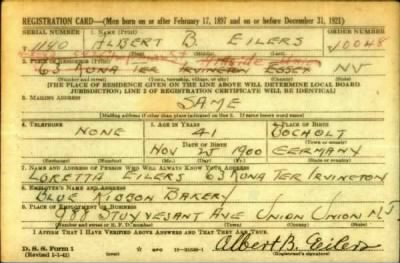 REGISTRATION CARD—(Men born on or after February 17, 1897 and on or before December 31, 1921)
SERIAL NUMBER 1. NAME (Print) ORDER NUMBER
1140 ALBERT B. EILERS 10048
(First) (Middle) (Last)
2. PLACE OF RESIDENCE (Print)
63 KUNA TER IRVINGTON ESSEX NJ
(Number and street) (Town, township, village, or city) (County) (State)
[THE PLACE OF RESIDENCE GIVEN ON THE LINE ABOVE WILL DETERMINE LOCAL BOARD
JURISDICTION; LINE 2 OF REGISTRATION CERTIFICATE WILL BE IDENTICAL]
3. MAILING ADDRESS
SAME
[Mailing address if other than place indicated on line 2. If same insert word same]
4. TELEPHONE 5. AGE IN YEARS 6. PLACE OF BIRTH
NONE 41 BOCHOLT
DATE OF BIRTH (Town or county)
NOV 25 1900 GERMANY
(Exchange) (Number) (Mo.) (Day) (Yr.) (State or country)
7. NAME AND ADDRESS OF PERSON WHO WILL ALWAYS KNOW YOUR ADDRESS
LORETTA EILERS 63 KUNA TER IRVINGTON
8. EMPLOYER'S NAME AND ADDRESS
BLUE RIBBON BAKERY
9. PLACE OF EMPLOYMENT OR BUSINESS
988 STUYVESANT AVE UNION UNION N.J.
(Number and street or R. F. D. number) (Town) (County) (State)
I AFFIRM THAT I HAVE VERIFIED ABOVE ANSWERS AND THAT THEY ARE TRUE.
D. S. S. Form 1
(Revised 1-1-42) (over) Albert B. Eilers
(Registrant's signature)